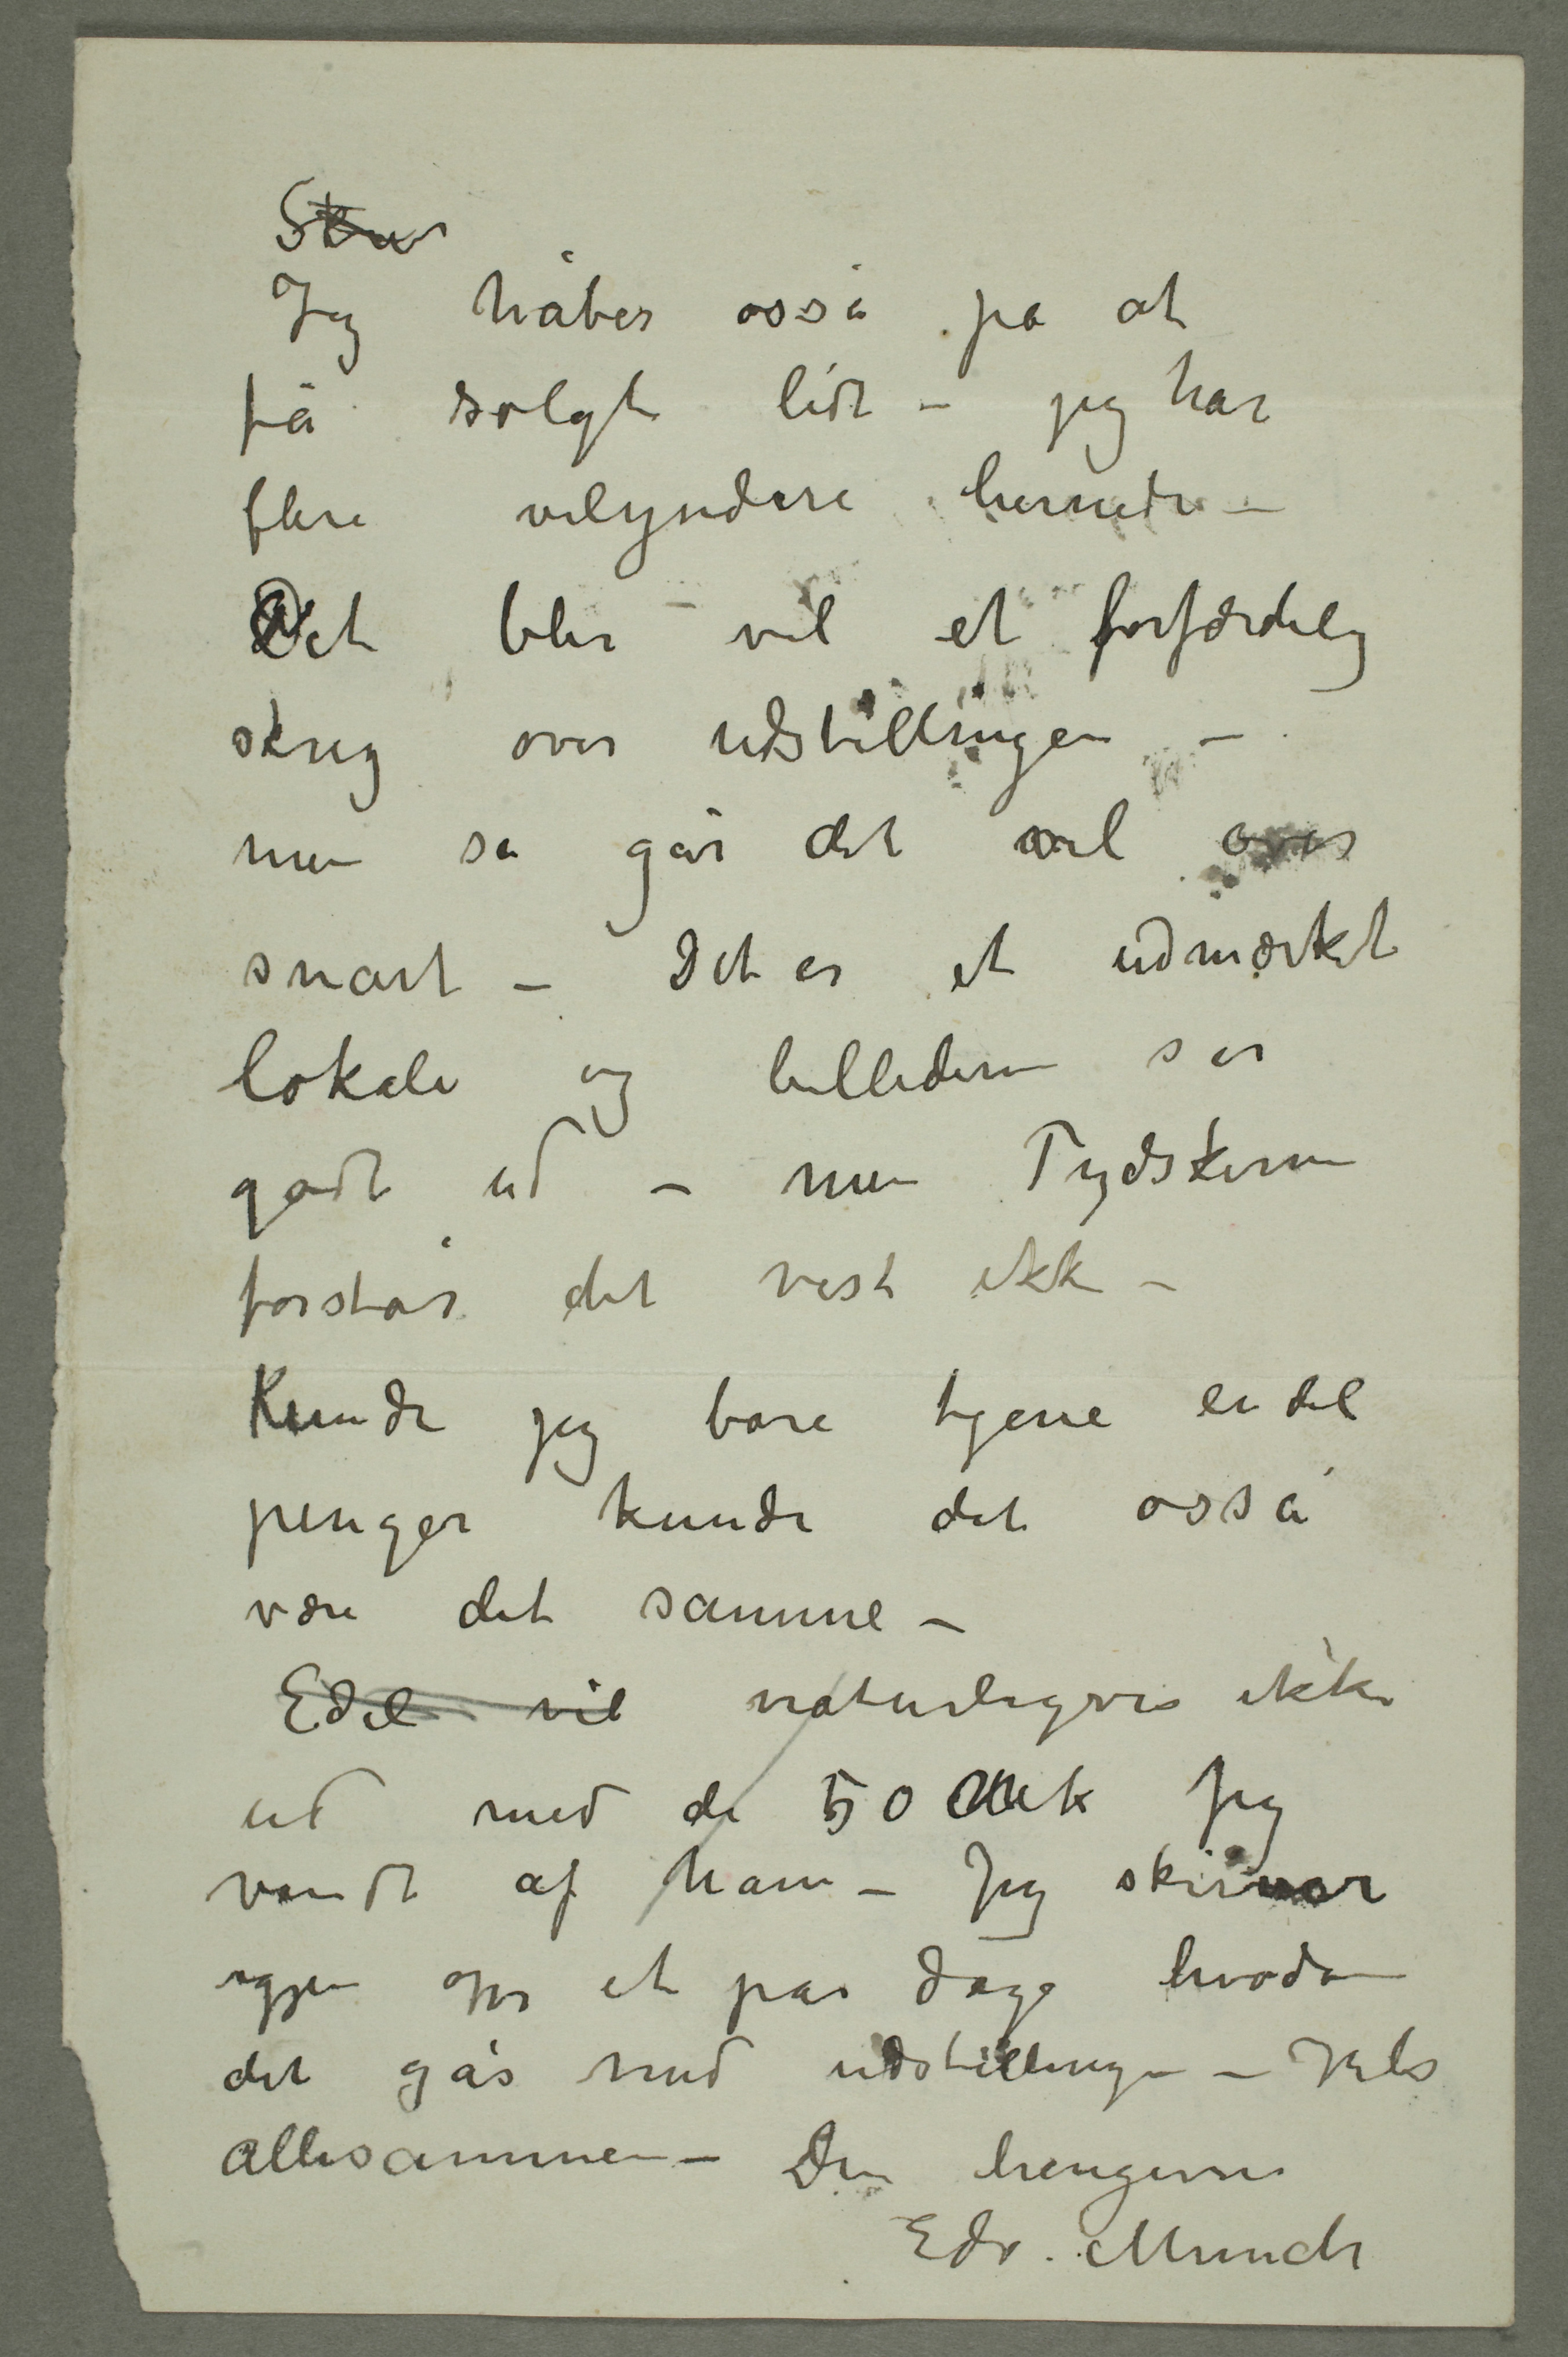 Jeg håber osså på at
få solgt lidt – jeg har
flere velyndere hernede –
Det blir vel et forfærdelig
skrig over udstillingen –
men så går det vel over
snart – Det er et udmærket
lokale og billederne ser
godt ud – men Tydskerne
forstår det vist ikke –
Kunde jeg bare tjene endel
penger kunde det osså
være det samme –
Edel vil naturligvis ikke
ud med de 50 Mk Jeg
vandt af ham – Jeg skriver
igjen om et par dage hvordan
det går med udstillingen – Hils
allesammen – Din hengivne
Edv. Munch